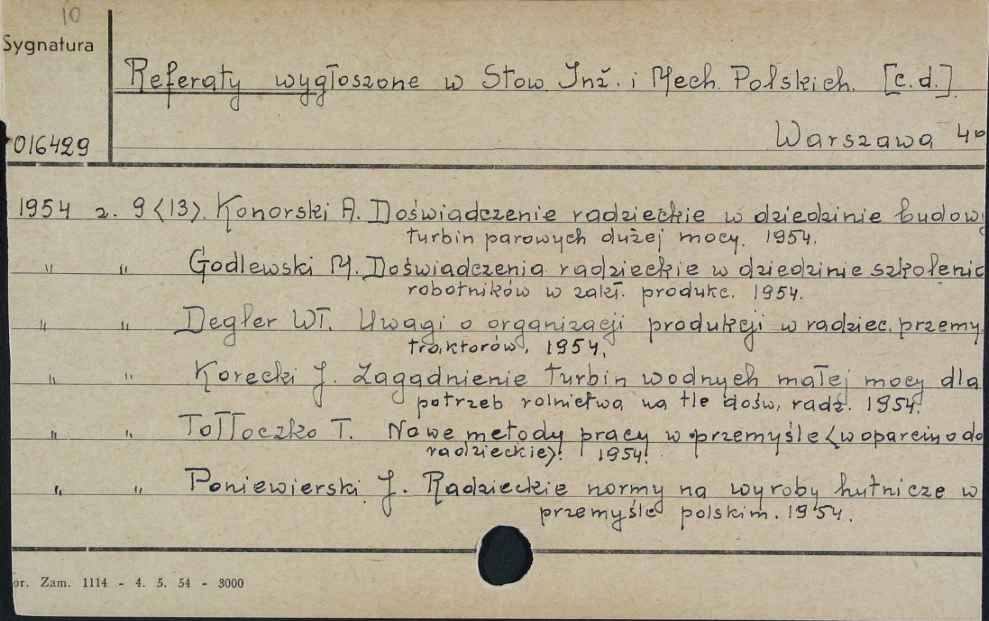 10
Sygnatura
Referaty wygłoszone w Stow. Inż. i Mech. Polskich. [c.d.].
016429
Warszawa 4°
1954 z. 9 <13>. Konorski A. Doświadczenie radzieckie w dziedzinie budowy
turbin parowych dużej mocy. 1954.
" " Godlewski M. Doświadczenia radzieckie w dziedzinie szkolenia
robotników w zakł. produkc. 1954.
" " Degler Wł. Uwagi o organizacji produkcji w radziec. przemy
traktorów. 1954.
" " Korecki J. Zagadnienie turbin wodnych małej mocy dla
potrzeb rolnictwa na tle dośw. radz. 1954.
" " Tołłoczko T. Nowe metody pracy w przemyśle <w oparciu o do
radzieckie>. 1954.
" " Poniewierski J. Radzieckie normy na wyroby hutnicze w
przemyśle polskim. 1954.
or. Zam. 1114 - 4. 5. 54 - 3000